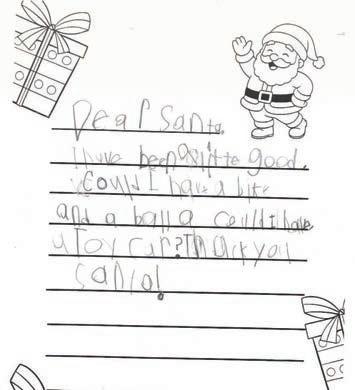 Dear Santa,
I have been a little good.
Could I have a bike
and a ball a could I have
a Toy car? Thank you
Santa!